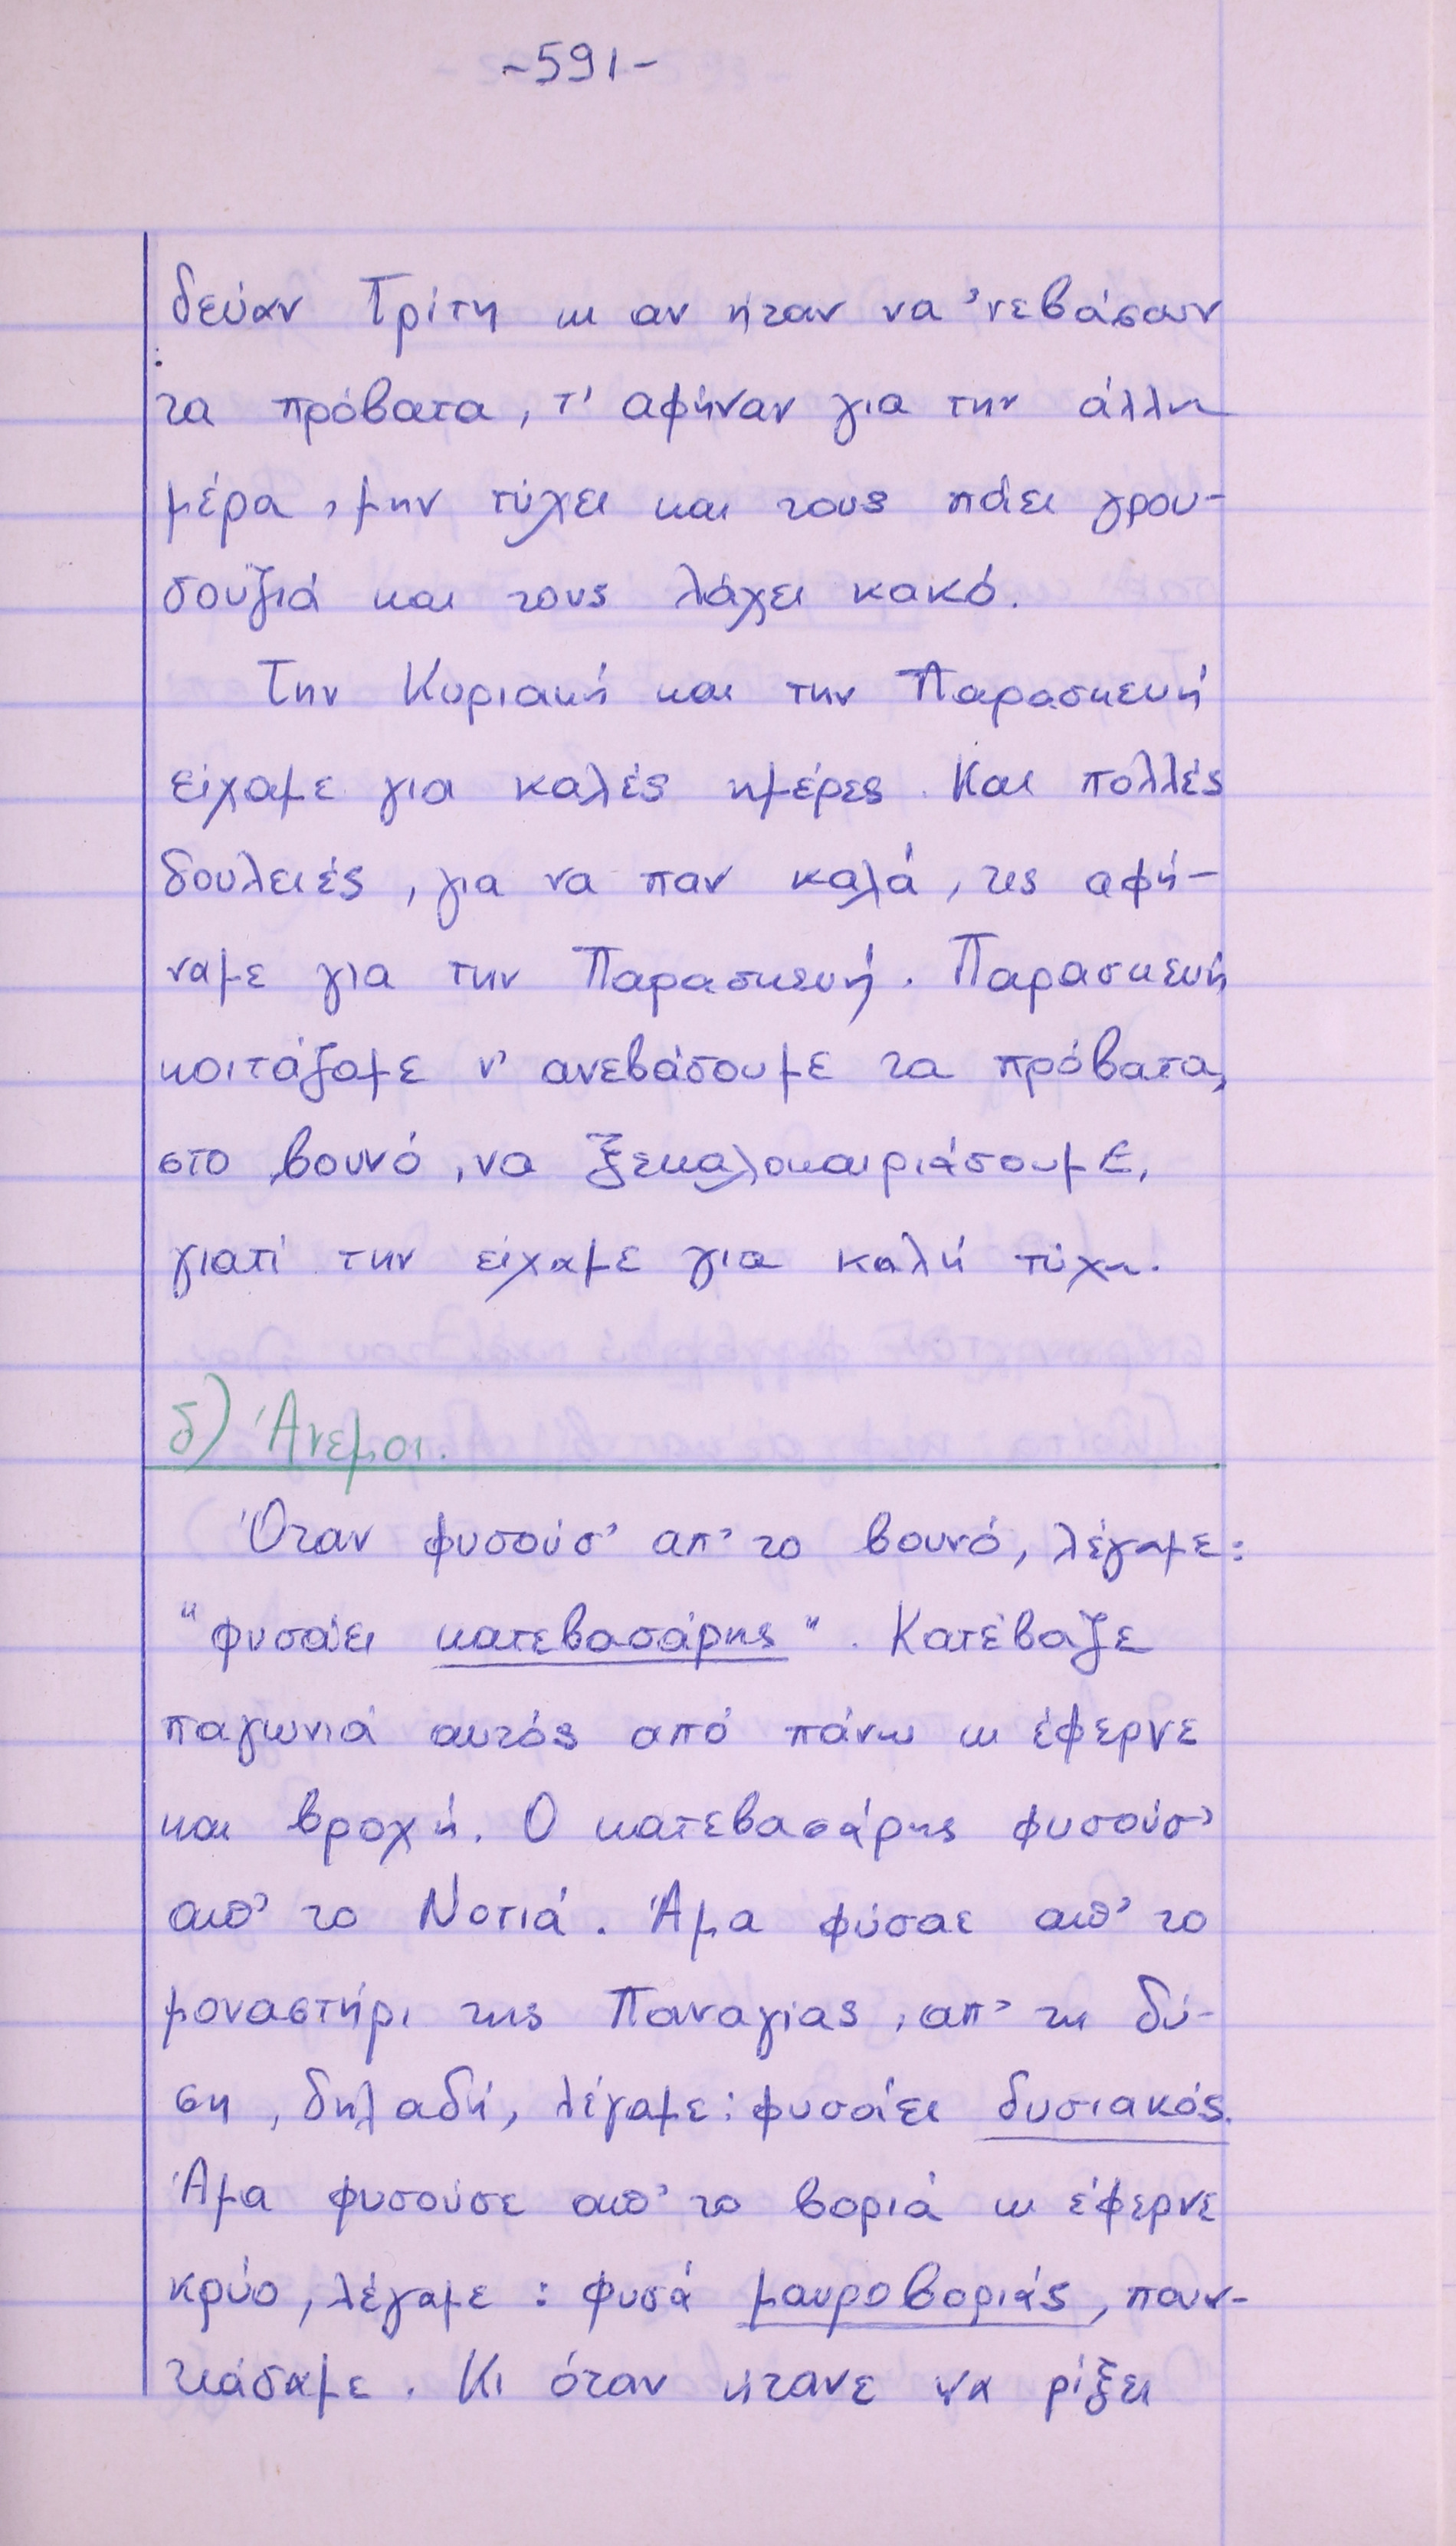 -591-
δεύαν Τρίτη κι αν ήταν να 'νεβάσουν
τα πρόβατα, τ' αφήναν για την άλλη
μέρα, μην τύχει και τους πάει γρου-
σουζιά και τους λάχει κακό.
Την Κυριακή και την Παρασκευή
είχαμε για καλές ημέρες. Και πολλές
δουλειές, για να παν καλά, τις αφή-
ναμε για την Παρασκευή. Παρασκευή
κοιτάζαμε ν' ανεβάσουμε τα πρόβατα,
στο βουνό, να ξεκαλοκαιριάσουμε,
γιατί την είχαμε για καλή τύχη.
δ) Άνεμοι.
Όταν φυσούσ' απ' το βουνό, λέγαμε:
"φυσάει κατεβασάρης". Κατέβαζε
παγωνιά αυτός από πάνω κι έφερνε
και βροχή. Ο κατεβασάρης φυσούσ'
απ' το Νοτιά. Άμα φύσαε απ' το
μοναστήρι της Παναγίας, απ' τη δύ-
ση, δηλαδή, λέγαμε: φυσάει δυσιακός.
Άμα φυσούσε απ' το βοριά κι έφερνε
κρύο, λέγαμε: φυσά μαυροβοριάς, πουν-
τιάσαμε. Κι όταν ήτανε να ρίξει